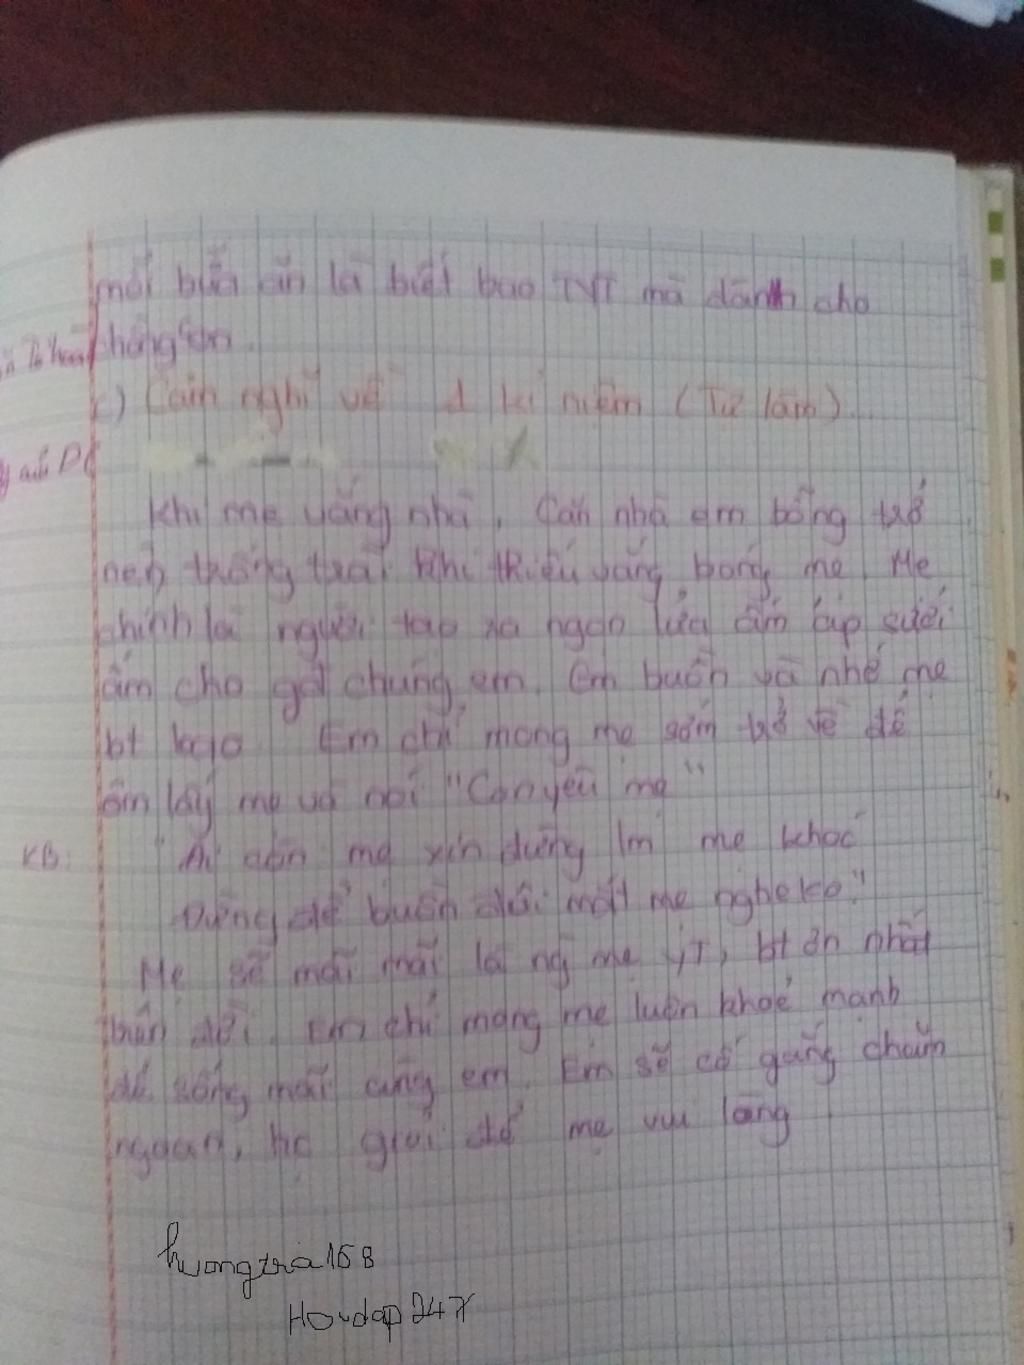 mỗi bữa ăn là biết bao TYT mà dành cho
chồng con.
c) Cảm nghĩ về 1 kỉ niệm (Tự làm)
Khi mẹ vắng nhà, Căn nhà em bỗng trở
nên trống trải khi thiếu vắng bóng mẹ. Mẹ
chính là người tạo ra ngọn lửa ấm áp sưởi
ấm cho gđ chúng em. Em buồn và nhớ mẹ
bt bao Em chỉ mong mẹ sớm trở về để
ôm lấy mẹ và nói "Con yêu mẹ"
KB: "Ai còn mẹ xin đừng lm mẹ khóc
Đừng để buồn đôi mắt mẹ nghe ko"
Mẹ sẽ mãi mãi là ng mẹ yT, bt ơn nhất
trên đời. Em chỉ mong mẹ luôn khoẻ mạnh
để sống mãi cùng em. Em sẽ cố gắng chăm
ngoan, hc giỏi để mẹ vui lòng
huongtra168
Hoidap247